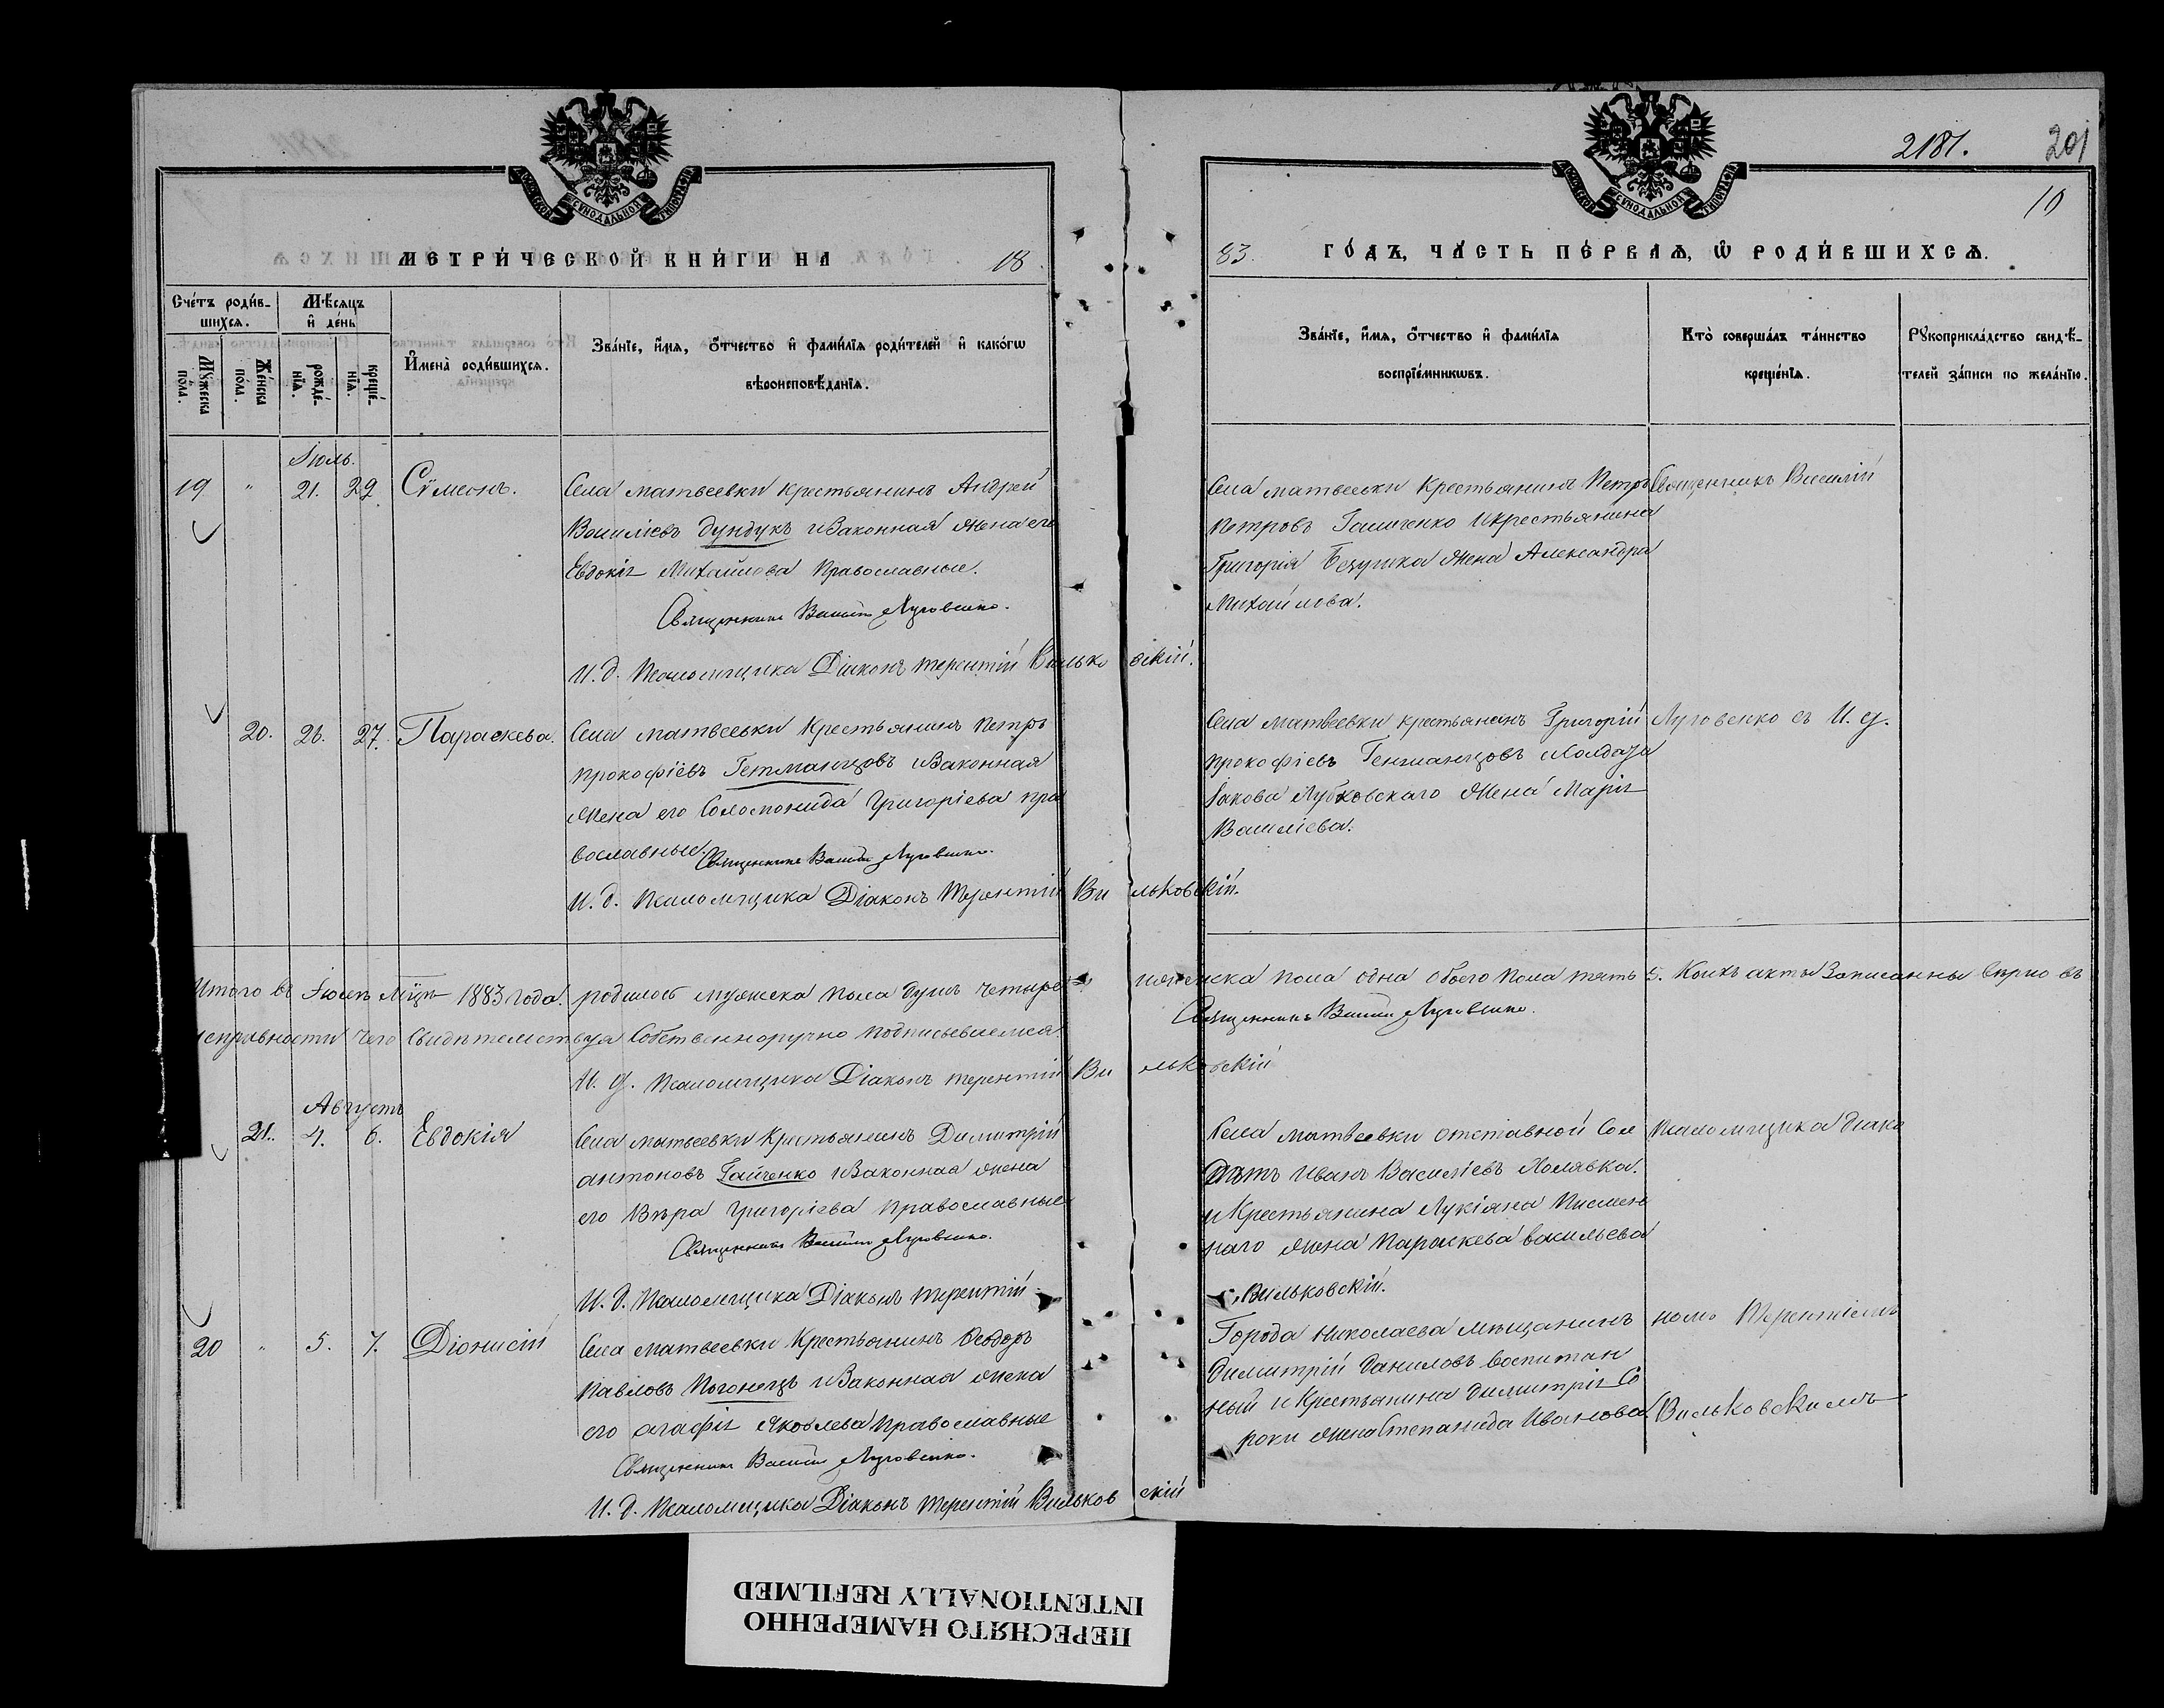 2181.
201
10
МЕТРИ́ЧЕСКОЙ КНИ́ГИ НА 18
83. ГО́ДЪ, ЧА́СТЬ ПЕ́РВАЯ, Ѡ РОДИ́ВШИХСЯ.
Сче́тъ роди́в-
шихся.
Мѣ́сяцъ
и҆ де́нь
Мꙋ́жеска
по́ла.
Же́нска
по́ла.
рожде́-
нїѧ.
креще́-
нїѧ.
И҆мена̀ роди́вшихся.
Зва́нїе, и҆́мѧ, ѻ҆́тчество и҆ фами́лїѧ роди́телей и҆ како́гѡ
вѣроисповѣ́данїѧ.
Зва́нїе, и҆́мѧ, ѻ҆́тчество и҆ фами́лїѧ
воспрїе́мникѡвъ.
Кто̀ соверша́лъ та́инство
креще́нїѧ.
Рꙋкоприкла́дство свидѣ́-
телей за́писи по жела́нїю.
Іюль.
19 " 21. 29 Сѵмеонъ.
Села Матвеевки Крестьянинъ Андрей
Василіевъ Дундукъ и Законная Жена его
Евдокія Михайлова Православные.
Священникъ Василій Луговенко.
И. д. Псаломщика Діаконъ Терентій Вильковскій.
Села Матвеевки Крестьянинъ Петръ
Петровъ и Крестьянина
Григорія Жена Александра
Михайлова.
Священникъ Василій
20. 26. 27. Параскева.
Села Матвеевки Крестьянинъ Петръ
Прокофіевъ Гетманцовъ и Законная
Жена его Соломонида Григоріева пра
вославные. Священникъ Василій Луговенко.
И. д. Псаломщика Діаконъ Терентій Вильковскій.
Села Матвеевки крестьянинъ Григорій
Прокофіевъ Гетманцовъ и Солдата
Іакова Лубковскаго Жена Марія
Василіева.
Луговенко съ И. д.
Итого въ Іюлѣ Мцѣ 1883 года. родилось мужеска пола душъ четыре женска пола одна обоего пола пять 5. Коихъ акты Записанны вѣрно въ
исправности чего Свидѣтельствуя Собственноручно подписываемся.
Священникъ Василій Луговенко.
И. д. Псаломщика Діаконъ Терентій Вильковскій
Августъ
21. 4. 6. Евдокія
Села Матвеевки Крестьянинъ Димитрій
Антоновъ Гайченко и Законная жена
его Вѣра Григоріева Православные
Священникъ Василій Луговенко.
И. д. Псаломщика Діаконъ Терентій Вильковскій.
Села Матвеевки отставной Сол
датъ Иванъ Василіевъ Холявка.
и Крестьянина Лукіяна Писмен
наго жена Параскева Васильева
Псаломщика Діако
20 " 5. 7. Діонисій
Села Матвеевки Крестьянинъ Феодоръ
Павловъ Погонецъ и Законная жена
его Агафія Яковлева Православные
Священникъ Василій Луговенко.
И. д. Псаломщика Діаконъ Терентій Вильковскій
Города Николаева мѣщанинъ
Димитрій Даниловъ Воспитан
ный и Крестьянина Димитрія Со
роки жена Степанида Иванова.
номъ Терентіемъ
Вильковскимъ
ПЕРЕСНЯТО НАМЕРЕННО
INTENTIONALLY REFILMED